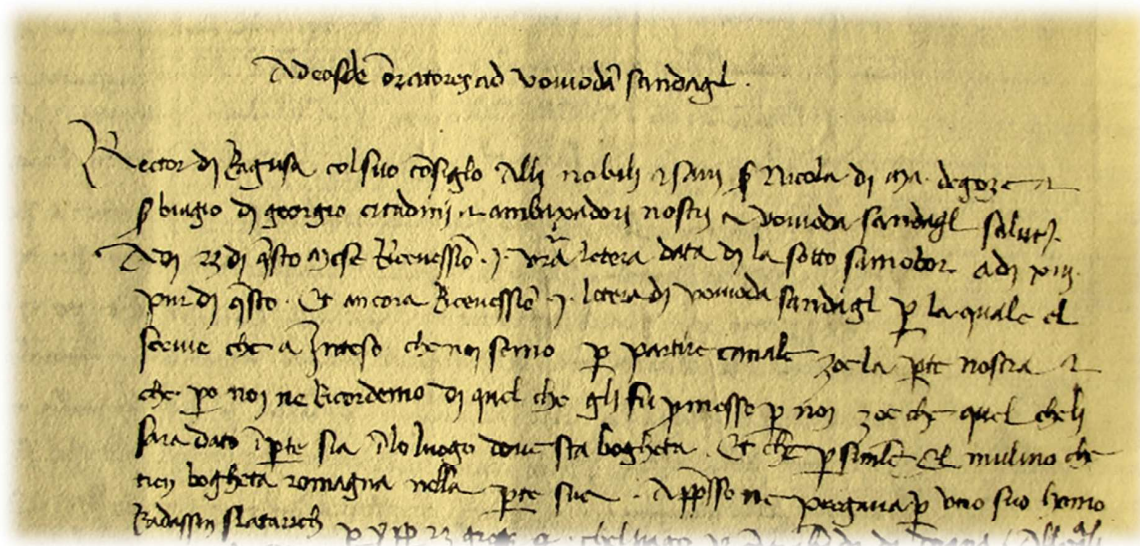 Ad eosdē oratores ad voivodā sandagl .
Rector di Ragusa col suo cōsiglo Alli nobili z savij Nicola di Ma. degoze z
biagio di georgio citadinj z ambaxadori nostri a voivoda sandagl salutē.
Adi 23 di q̄sto mese Ricevessemo .j. vrā letera data di la sotto samobor adi xiij
pur di q̄sto . Et ancora Ricevessemo .j. letera di voivoda sandagl p̱ la quale el
scrive che a Inteso che noi semo p̱ partire canale zoe la p̱te nostra z
che po noi ne Ricordemo di quel che gli fu p̱messo p̱ noi zoe che quel che li
sara dato ī p̱te sia ī lo luogo dove sta bogheta . Et che p̱ simile El mulino che
tien bogheta romagna nella p̱te sua . App̄sso ne pregava p̱ uno suo homo
Radassin slatarich